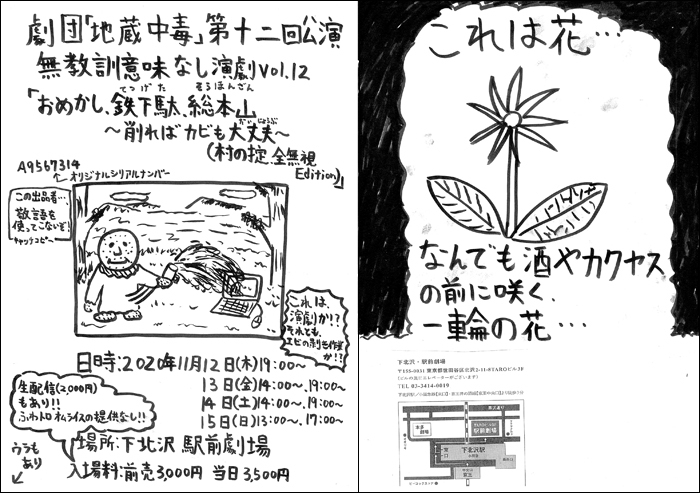 劇団「地蔵中毒」第十二回公演
無教訓意味なし演劇vol.12
てつげた そうほんざん
「おめかし、鉄下駄、総本山
だいじょうぶ
〜削ればカビも大丈夫〜
(村の掟、全無視
Edition)」
A9567314
←オリジナルシリアルナンバー
この出品者…
敬語を
使ってこないぞ!
キャッチコピー
これは、
演劇か!?
それとも、
エビの
日時:2020年11月12日(木)19:00〜
13日(金)14:00〜、19:00〜
14日(土)14:00〜、19:00〜
15日(日)13:00〜、17:00〜
生配信(2,000円)
もあり!!
ふわトロオムライスの提供なし!!
場所:下北沢 駅前劇場
入場料:前売3,000円 当日3,500円
ウラも
あり
これは花…
なんでも酒やカクヤス
の前に咲く、
一輪の花…
下北沢・駅前劇場
〒155-0031 東京都世田谷区北沢2-11-8TAROビル3F
(ビルの奥にエレベーターがございます)
TEL 03-3414-0019
本多
劇場
駅前劇場
下北沢駅